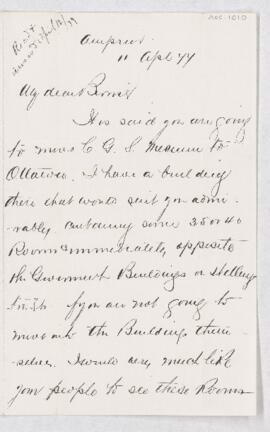 Acc. 1010
Read &
answered April 12/77
Arnprior
11 Apl 77
My dear Borris
It is said you are going
to move C G S Museum to
Ottawa. I have a building
there that would suit you admi-
rably containing some 35 or 40
Rooms immediately opposite
the Government Buildings on
St. If you are not going to
move into the Building them-
selves. I would very much like
your people to see these Rooms